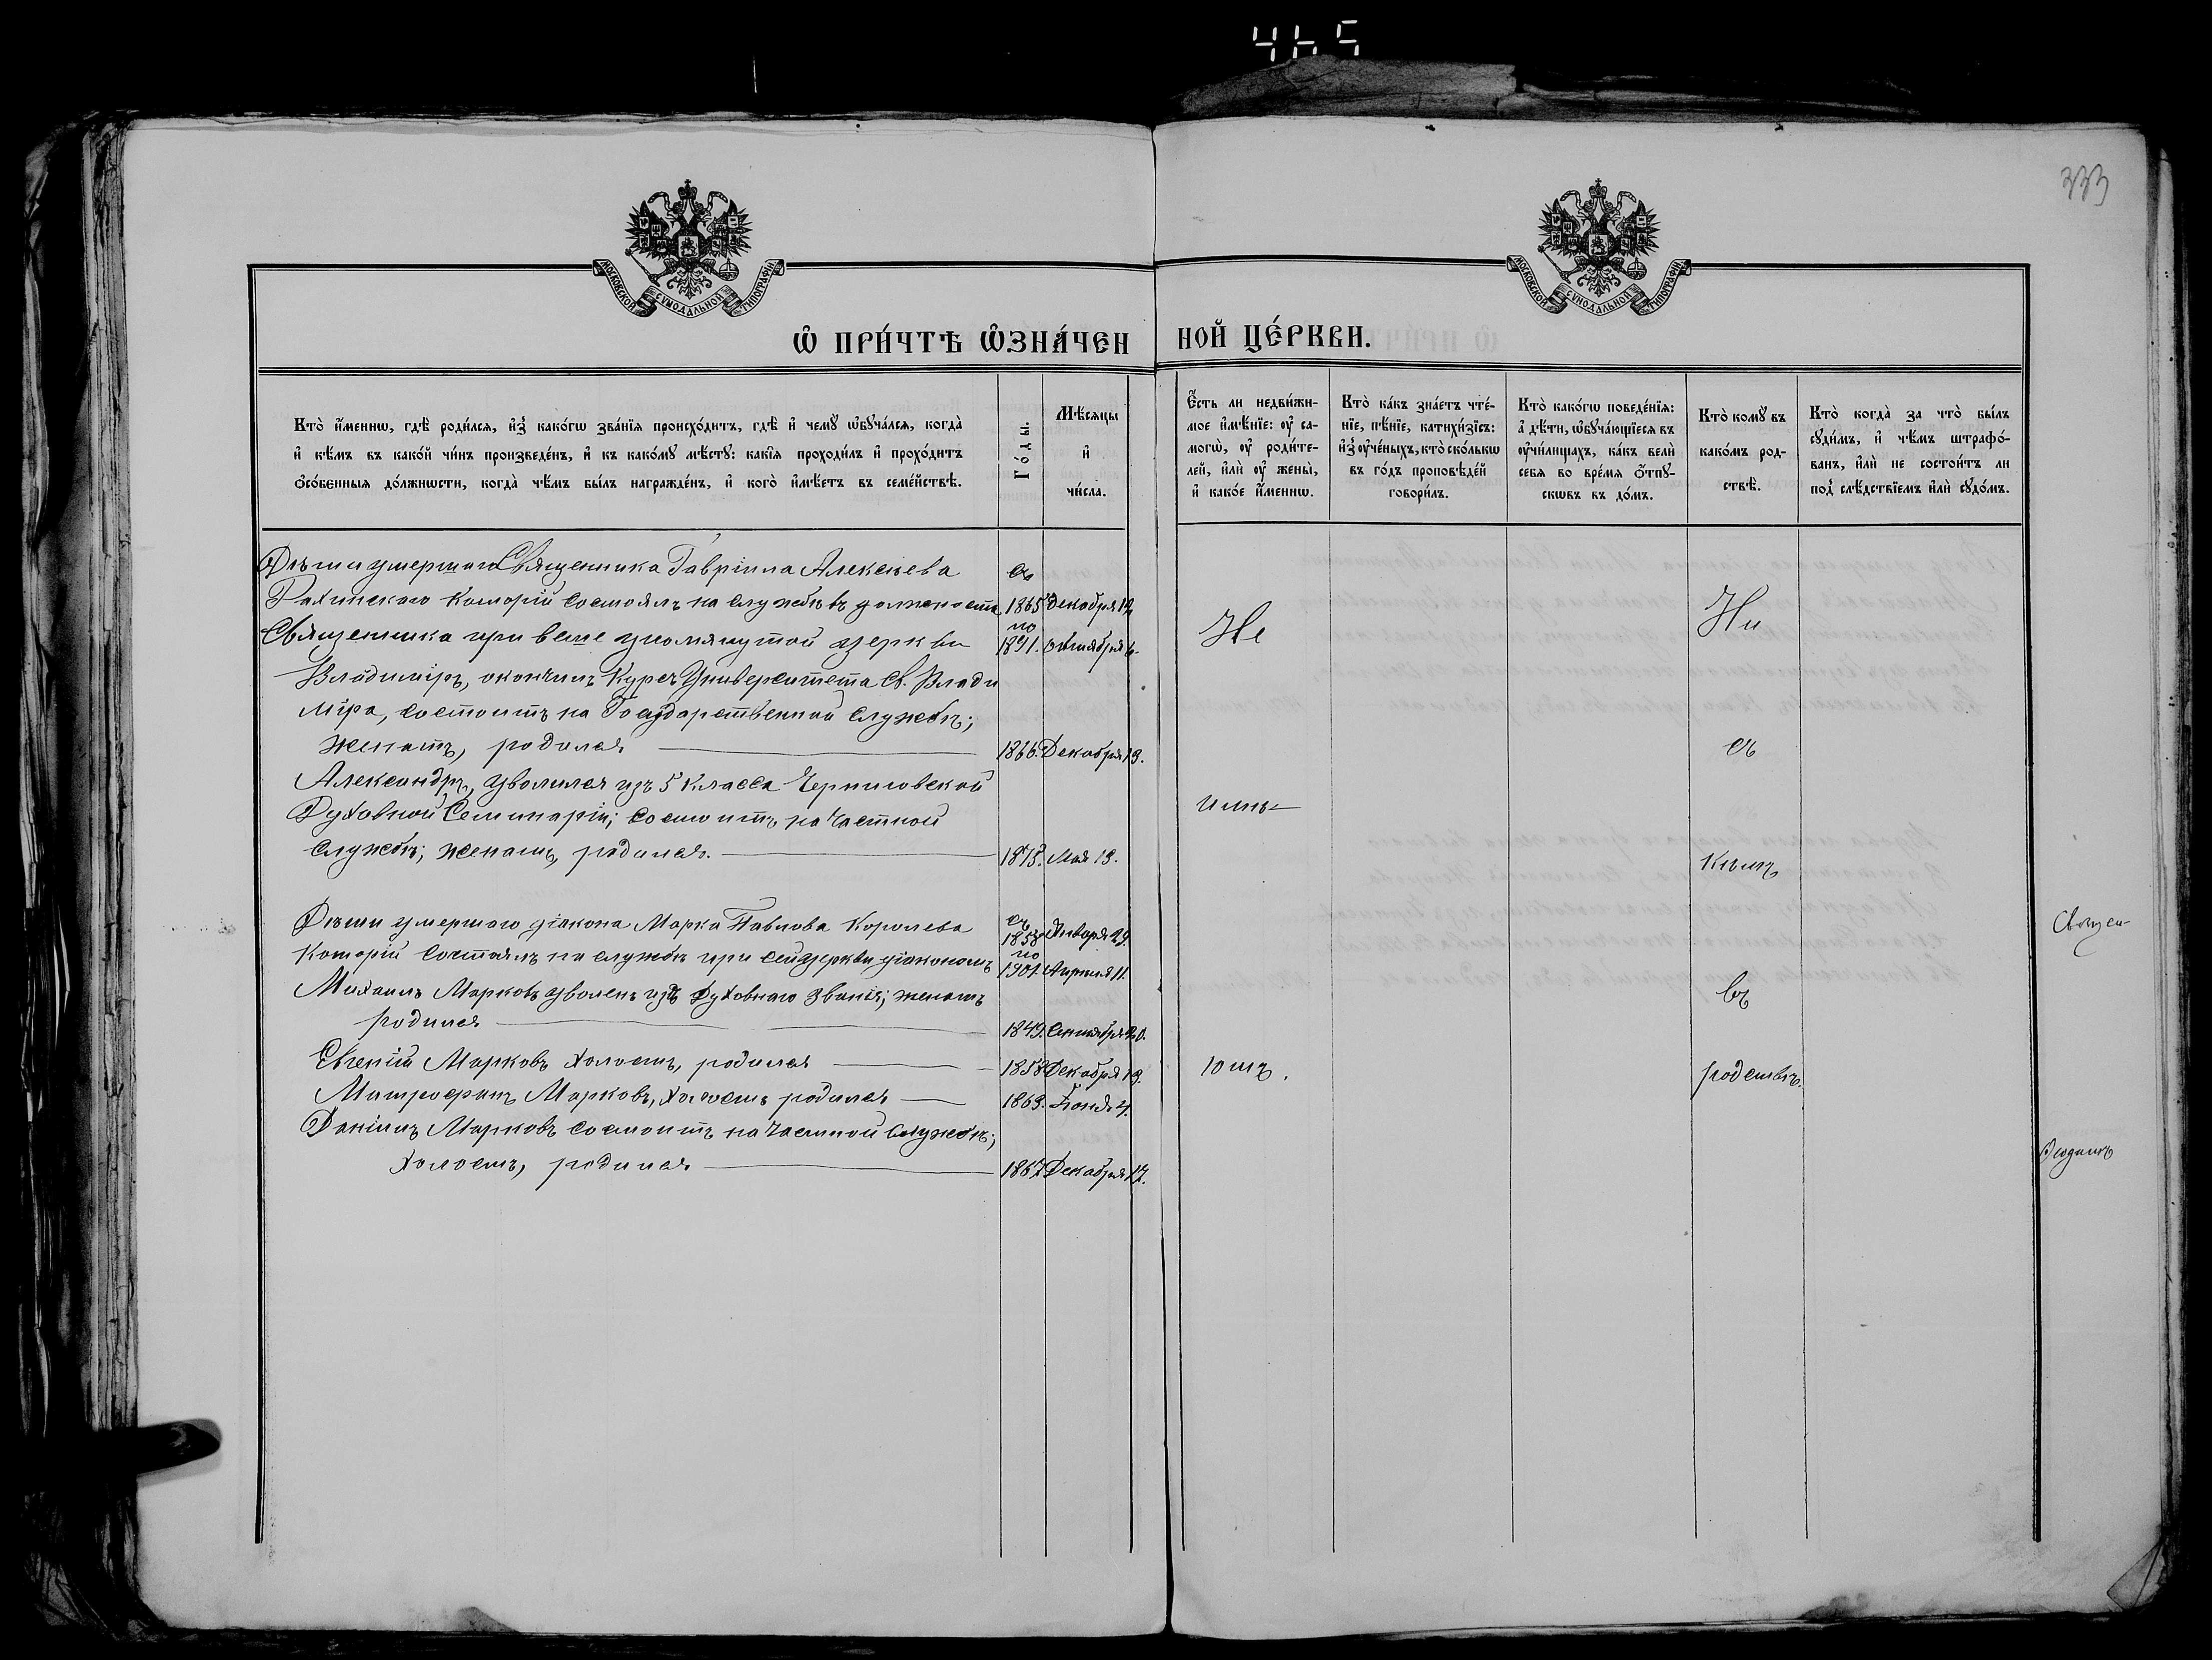 465
333
МОСКОВСКОЙ СѴНОДАЛЬНОЙ ТИПОГРАФІИ
МОСКОВСКОЙ СѴНОДАЛЬНОЙ ТИПОГРАФІИ
Ѡ ПРИ́ЧТѢ ѠЗНА́ЧЕННОЙ ЦЕ́РКВИ.
Кто̀ и҆́меннѡ, гдѣ̀ роди́лся, и҆з̾ како́гѡ зва́нїя происхо́дитъ, гдѣ̀ и҆ чемꙋ̀ ѡ҆бꙋча́лся, когда̀
и҆ кѣ́мъ въ како́й чи́нъ произведе́нъ, и҆ къ како́мꙋ мѣ́стꙋ: какі̑я проходи́лъ и҆ прохо́дитъ
ѻ҆со́бенныя до́лжнѡсти, когда̀ чѣ́мъ бы́лъ награжде́нъ, и҆ кого̀ и҆мѣ́етъ въ семе́йствѣ.
Го́ды.
Мѣ́сяцы
и҆
чи́сла.
Є҆́сть ли недви́жи-
мое и҆мѣ́нїе: ᲂу҆ са-
могѡ̀, ᲂу҆ роди́те-
лей, и҆лѝ ᲂу҆ жены̀,
и҆ како́е и҆́меннѡ.
Кто̀ ка́къ зна́етъ чте́-
нїе, пѣ́нїе, катихи́зїсъ:
и҆з̾ ᲂу҆че́ныхъ, кто̀ ско́лькѡ
въ го́дъ проповѣ́дей
говори́лъ.
Кто̀ како́гѡ поведе́нїя:
а҆ дѣ́ти, ѡ҆бꙋча́ющїеся въ
ᲂу҆чи́лищахъ, ка́къ велѝ
себѧ̀ во вре́мя ѻ҆́тпꙋ-
скѡвъ въ до́мъ.
Кто̀ комꙋ̀ въ
како́мъ род-
ствѣ̀.
Кто̀ когда̀ за что̀ бы́лъ
сꙋди́мъ, и҆ чѣ́мъ штрафо́-
ванъ, и҆лѝ не состои́тъ ли
под̾ слѣ́дствїемъ и҆лѝ сꙋдо́мъ.
Дѣти умершаго Священника Гавріила Алексѣева съ
Рахинскаго который состоялъ на службѣ въ должности 1865 Декабря 12
по
Священника при выше упомянутой церкви 1891. Октября 6.
Владиміръ, окончилъ курсъ Университета Св. Влади
міра, состоитъ на Государственной службѣ;
женатъ, родился 1866. Декабря 19.
Александръ, уволился изъ 5 класса Черниговской
Духовной Семинаріи; состоитъ на частной
службѣ; женатъ, родился. 1875. Мая 19.
Дѣти умершаго діакона Марка Павлова Королева съ 1858 Января 29.
который состоялъ на службѣ при сей церкви діакономъ по 1901. Апрѣля 11.
Михаилъ Марковъ уволенъ изъ духовнаго званія; женатъ
родился 1849. Сентября 20.
Евгеній Марковъ холостъ, родился 1858 Декабря 19.
Митрофанъ Марковъ, холостъ родился 1863. Іюня 4.
Даніилъ Марковъ состоитъ на частной службѣ;
холостъ, родился 1867 Декабря 17.
Не
имѣ-
ютъ.
Ни
съ
кѣмъ
въ
родствѣ.